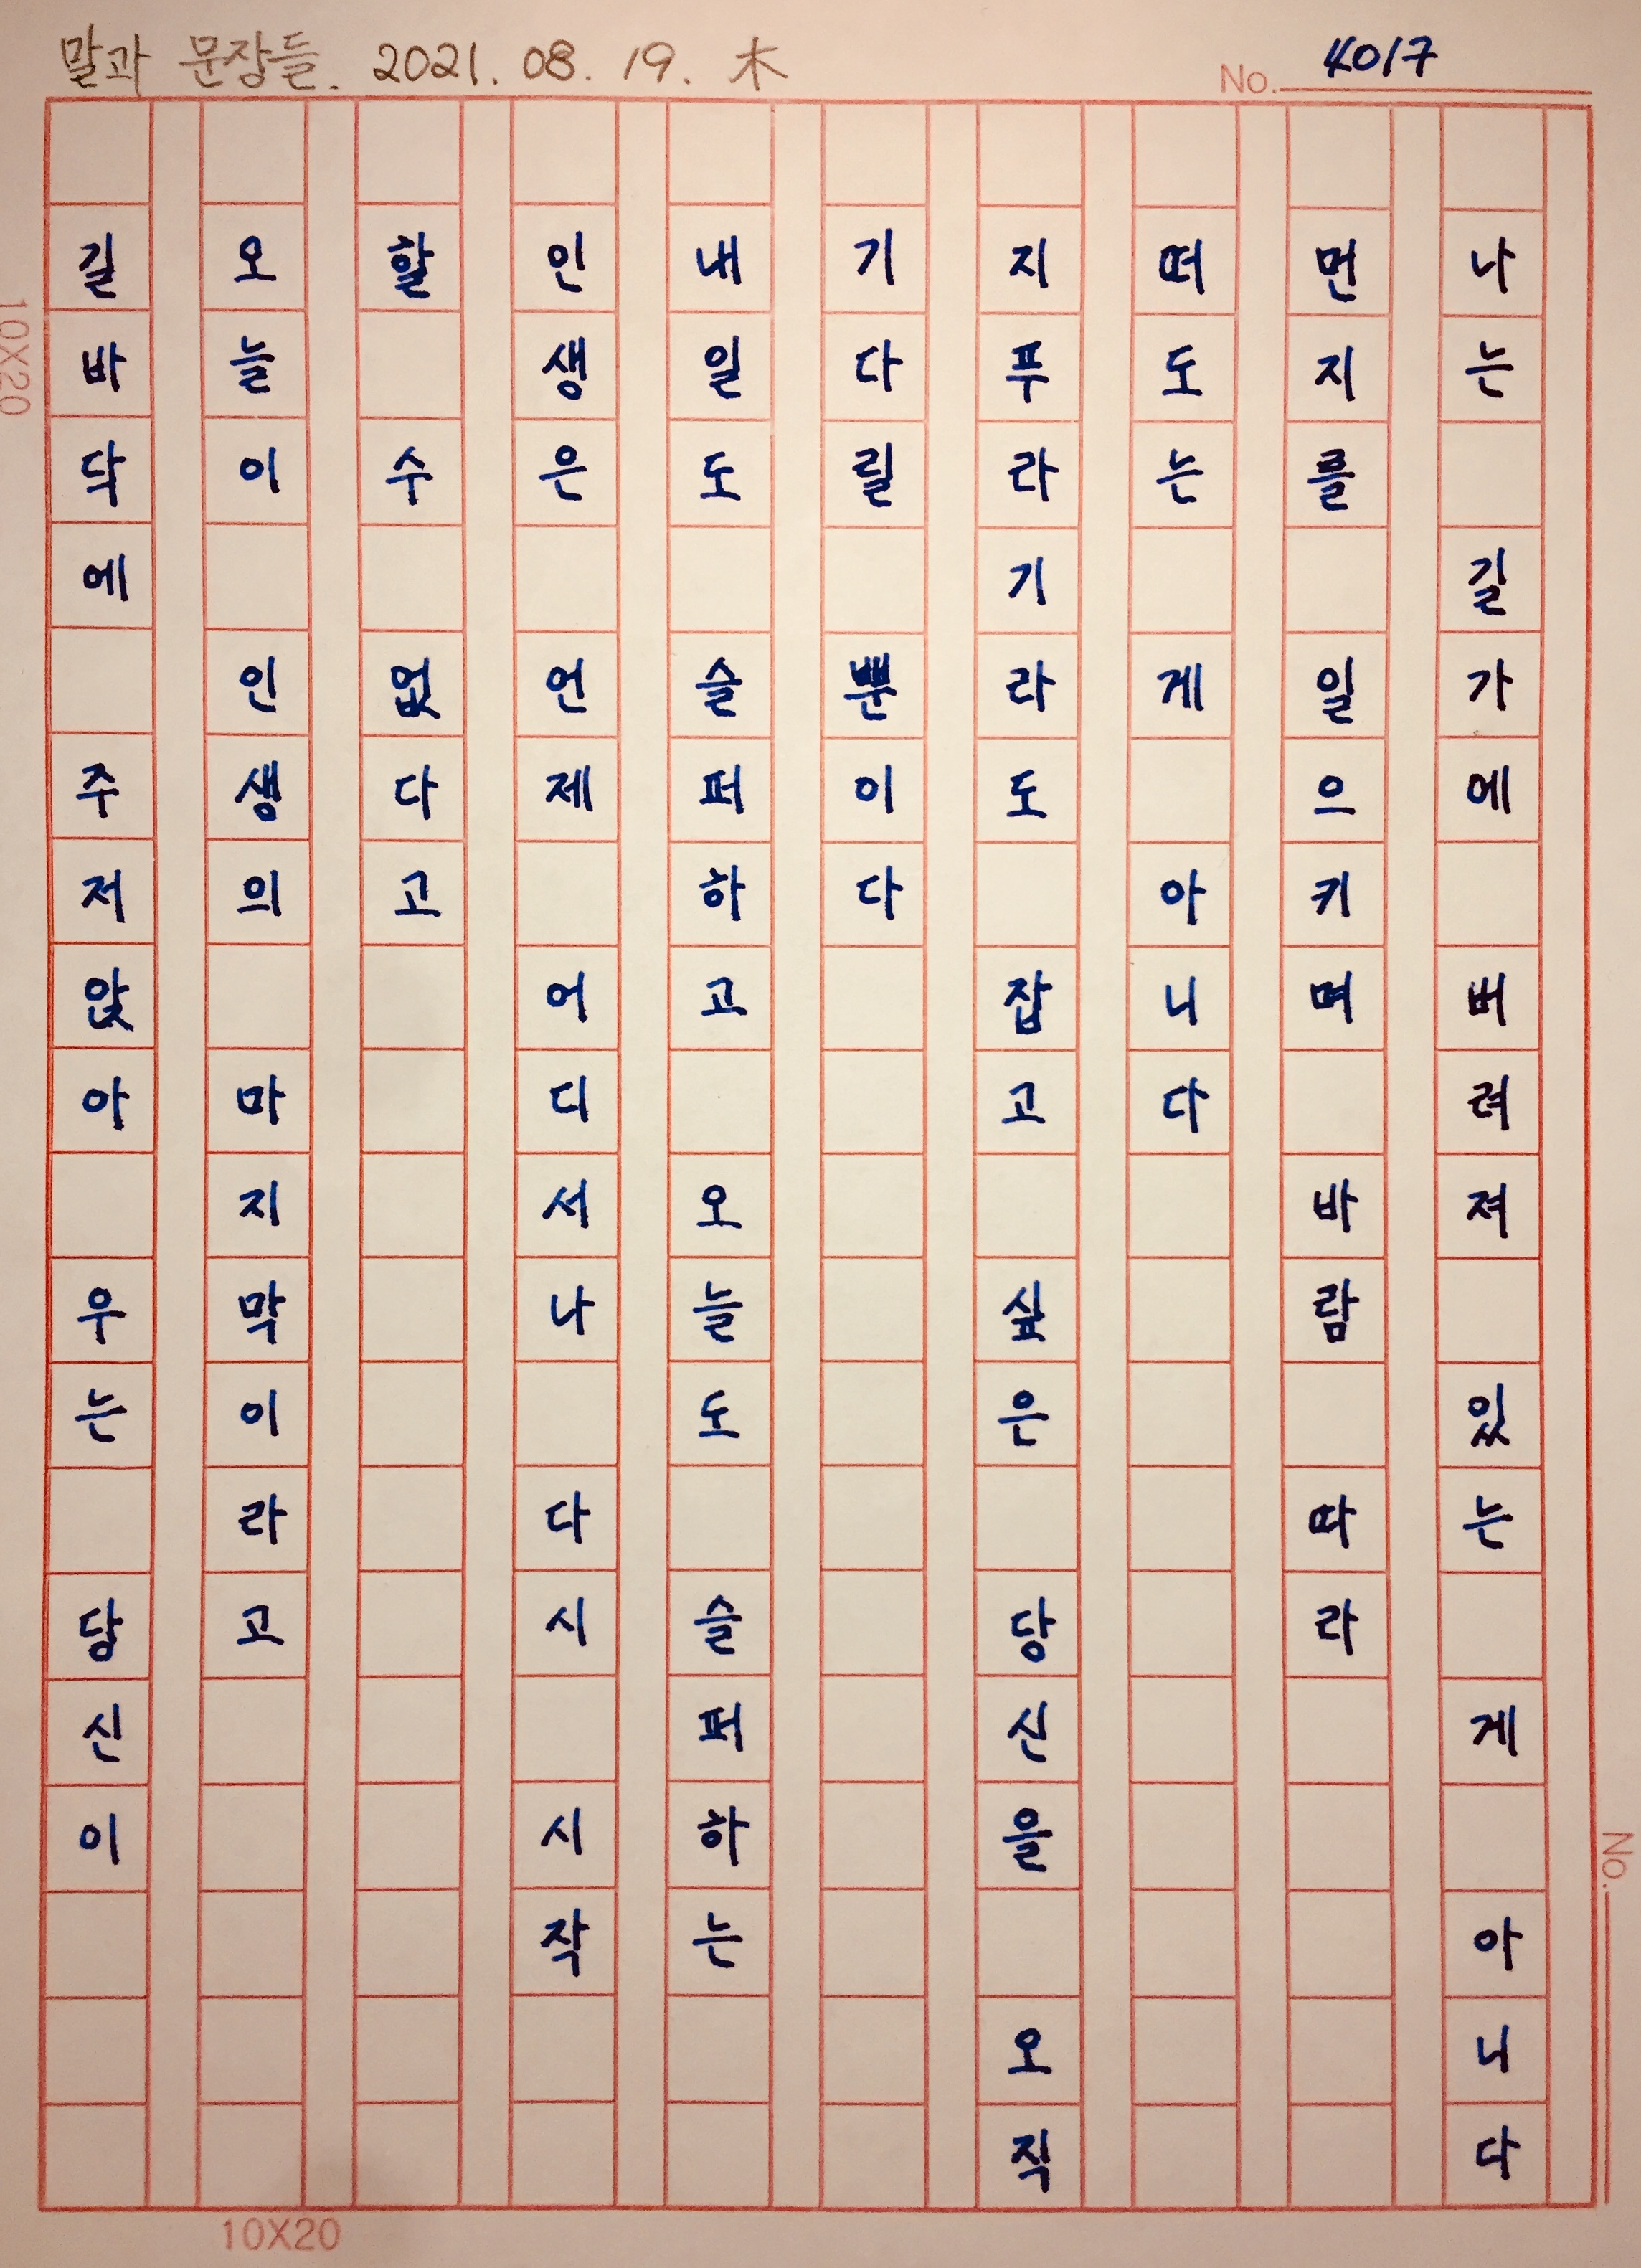 말과 문장들. 2021. 08. 19. 木
No. 4017
나는 길가에 버려져 있는 게 아니다
먼지를 일으키며 바람 따라
떠도는 게 아니다
지푸라기라도 잡고 싶은 당신을 오직
기다릴 뿐이다
내일도 슬퍼하고 오늘도 슬퍼하는
인생은 언제 어디서나 다시 시작
할 수 없다고
오늘이 인생의 마지막이라고
길바닥에 주저앉아 우는 당신이
10X20
No.
10X20